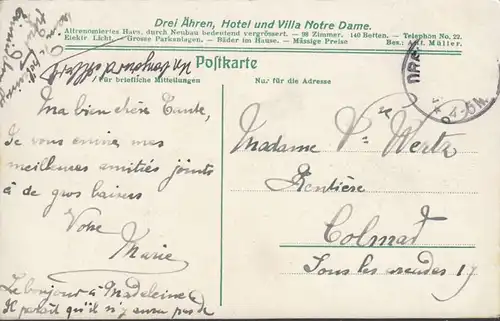 Drei Ähren, Hotel und Villa Notre Dame.
Altrenomiertes Haus, durch Neubau bedeutend vergrössert. — 98 Zimmer. 140 Betten. — Telephon No. 22.
Elektr. Licht. — Grosse Parkanlagen. — Bäder im Hause. — Mässige Preise Bes.: Ad. Müller.
Postkarte
Für briefliche Mitteilungen
Nur für die Adresse
Ma bien chère Tante,
Je vous envoie mes
meilleures amitiés joints
à de gros baisers
Votre
Marie
Le bonjour à Madeleine
Il parait qu'il n'y aura pas de
DRE
Madame Vve Wertz
Rentière
Colmar
Sous les arcades 17